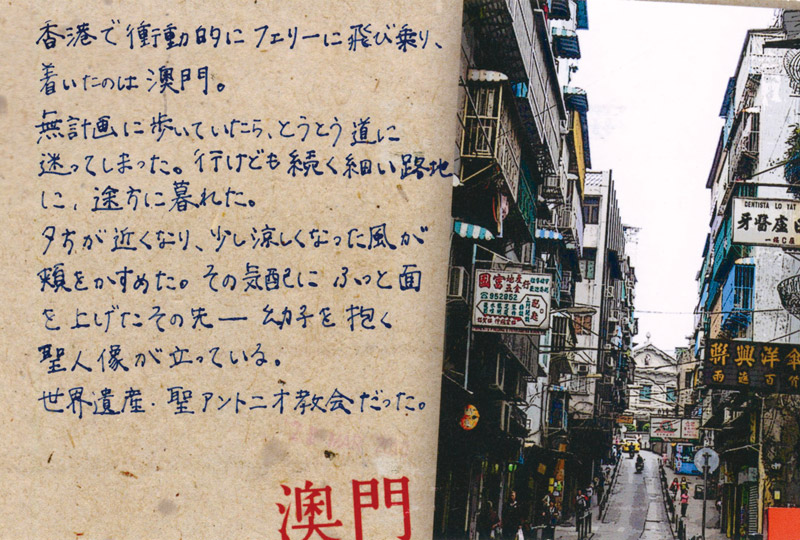 香港で衝動的にフェリーに飛び乗り、
着いたのは澳門。
無計画に歩いていたら、とうとう道に
迷ってしまった。行けども続く細い路地
に、途方に暮れた。
夕方が近くなり、少し涼しくなった風が
頬をかすめた。その気配にふっと面
を上げたその先ー幼子を抱く
聖人像が立っている。
世界遺産・聖アントニオ教会だった。
澳門
DENTISTA LO TAT
牙醫盧日
一樓C座
國宮地產行
五金
☎952952
聯興洋傘